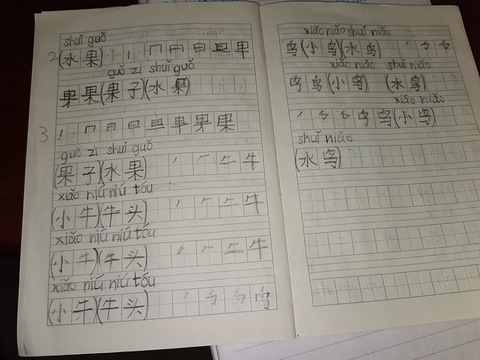 shuǐ guǒ
2 (水果) 丨 冂 曰 旦 甲
guǒ zi shuǐ guǒ
果果(果子)(水果)
3. 丨 冂 日 旦 甲 早 果
guǒ zi shuǐ guǒ
(果子)(水果) 丿 𠂉 牛
xiǎo niú niú tóu
(小牛)(牛头) 丿 𠂉 牛
xiǎo niú niú tóu
(小牛)(牛头) 丿 𠂉 牛
xiǎo niú niú tóu
(小牛)(牛头) 丿 鸟
xiǎo niǎo shuǐ niǎo
鸟(小鸟)(水鸟) 丿
xiǎo niǎo shuǐ niǎo
鸟鸟(小鸟)(水鸟)
xiǎo niǎo
丿 鸟鸟(小鸟)
shuǐ niǎo
(水鸟)